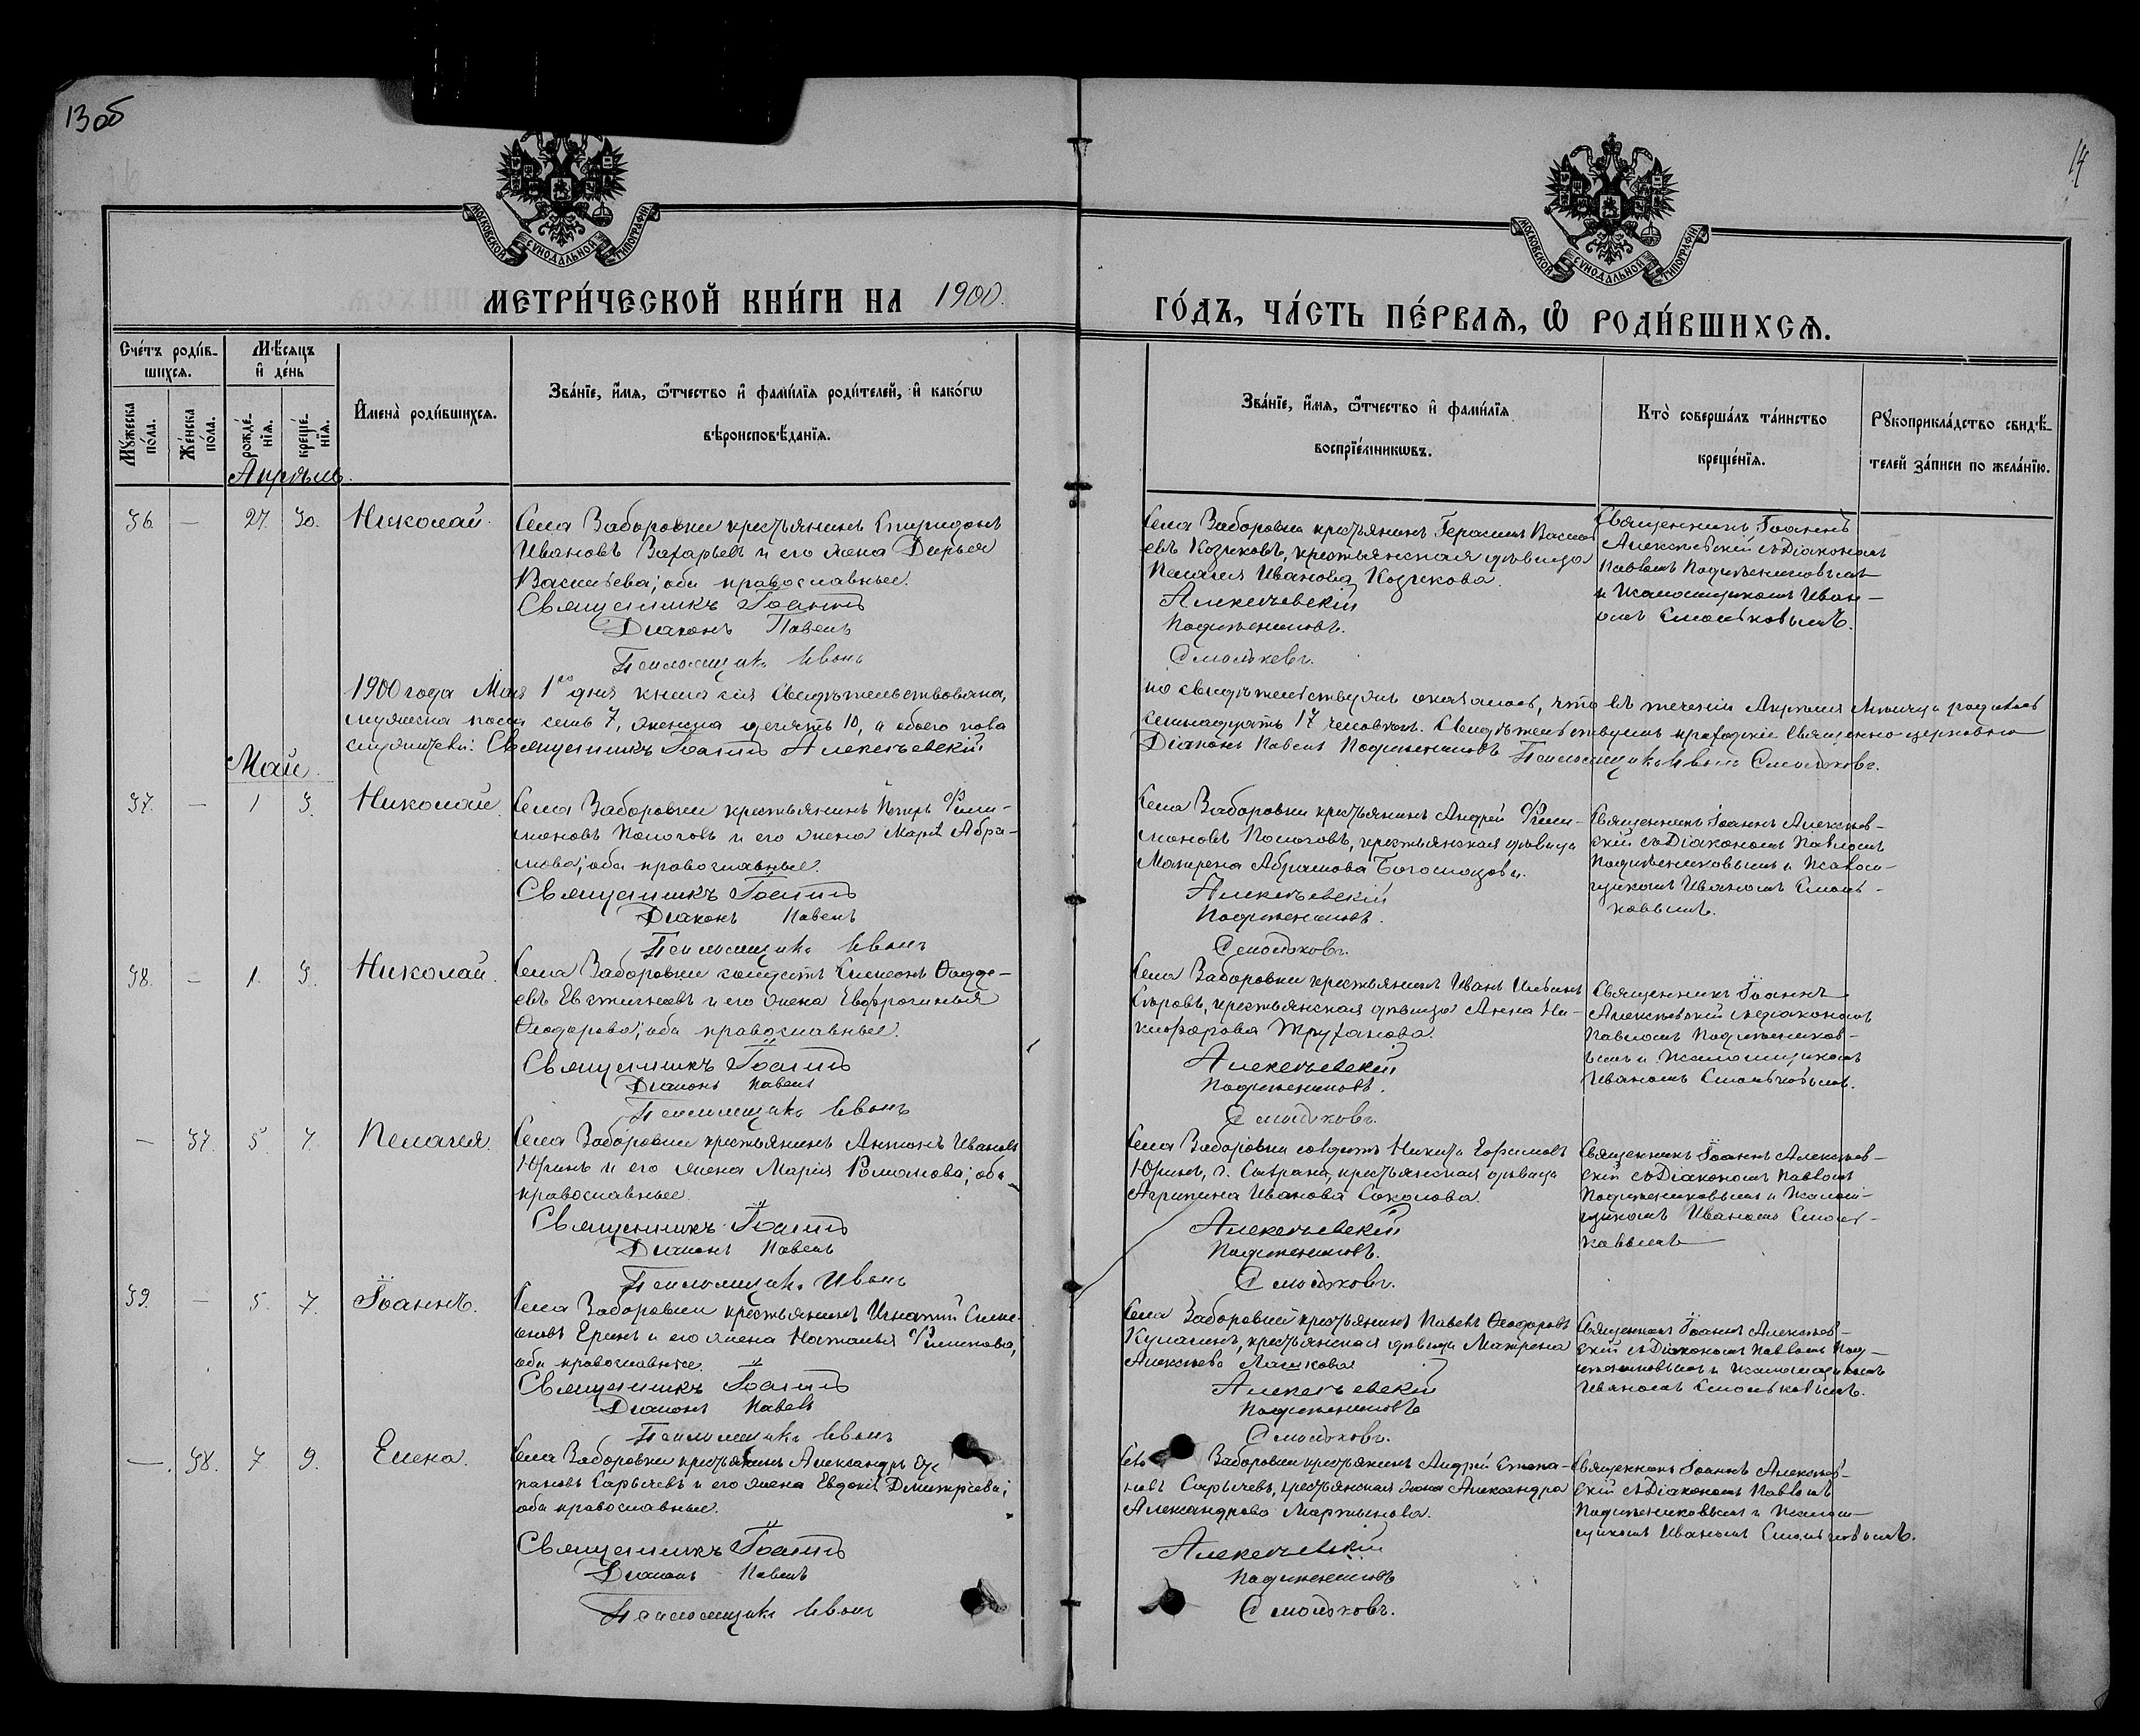 13 об
14
МОСКОВСКОЙ СѴНОДАЛЬНОЙ ТИПОГРАФІИ
МОСКОВСКОЙ СѴНОДАЛЬНОЙ ТИПОГРАФІИ
МЕТРИ́ЧЕСКОЙ КНИ́ГИ НА 1900.
ГО́ДЪ, ЧА́СТЬ ПЕ́РВАѦ, Ѽ РОДИ́ВШИХСѦ.
Сче́тъ роди́в-
шихсѧ.
Мꙋ́жеска по́ла.
Же́нска по́ла.
Мѣ́сѧцъ
и҆ де́нь
рожде́-нїѧ.
креще́-нїѧ.
И҆мена̀ роди́вшихсѧ.
Зва́нїе, и҆́мѧ, ѻ҆́тчество и҆ фами́лїѧ роди́телей, и҆ како́гѡ
вѣроисповѣ́данїѧ.
Зва́нїе, и҆́мѧ, ѻ҆́тчество и҆ фами́лїѧ
воспрїе́мникѡвъ.
Кто̀ соверша́лъ та́инство
креще́нїѧ.
Рꙋкоприкла́дство свидѣ́-
телей за́писи по жела́нїю.
Апрѣль.
36. — 27. 30. Николай.
Села Заборовки крестьянинъ Спиридонъ
Ивановъ Захарьевъ и его жена Дарья
Васильева; оба православные.
Священникъ Іоаннъ
Діаконъ Павелъ
Псаломщикъ Иванъ
Села Заборовки крестьянинъ Герасимъ Василь
евъ Козиковъ, крестьянская дѣвица
Пелагія Иванова Козикова.
Алексѣевскій
Подъячениковъ.
Смольковъ.
Священникъ Іоаннъ
Алексѣевскій съ Діакономъ
Павломъ
и Псаломщикомъ Иван-
омъ Смольковымъ.
1900 года Мая 1го дня книга сія свидѣтельствована,
по свидѣтельствуемъ оказалось, что въ теченіи Апрѣля мѣсяца родилось
мужеска пола семь 7, женска десять 10, а обоего пола
семнадцать 17 человѣкъ. Свидѣтельствуемъ приходскіе священно-церковно
служители: Священникъ Іоаннъ Алексѣевскій
Діаконъ Павелъ Псаломщикъ Иванъ Смольковъ.
Май.
37. — 1 3. Николай.
Села Заборовки крестьянинъ Петръ Фили-
моновъ Пологовъ и его жена Марія Абра-
мова; оба православные.
Священникъ Іоаннъ
Діаконъ Павелъ
Псаломщикъ Иванъ
Села Заборовки крестьянинъ Андрей Фили-
моновъ Пологовъ, крестьянская дѣвица
Матрена Абрамова
Алексѣевскій
Смольковъ.
Священникъ Іоаннъ Алексѣев-
скій съ Діакономъ Павломъ
и Псалом-
щикомъ Иваномъ Смоль-
ковымъ.
38. — 1. 3. Николай.
Села Заборовки солдатъ Симеонъ Фадде-
евъ Евстигнеевъ и его жена Евфросинья
Ѳеодорова; оба православные.
Священникъ Іоаннъ
Діаконъ Павелъ
Псаломщикъ Иванъ
Села Заборовки крестьянинъ Иванъ Ильинъ
крестьянская дѣвица Анна Ни-
кифорова Труханова.
Алексѣевскій
Смольковъ.
Священникъ Іоаннъ
Алексѣевскій съ Діакономъ
Павломъ
и Псаломщикомъ
Иваномъ Смольковымъ.
— 37. 5. 7. Пелагія.
Села Заборовки крестьянинъ Антонъ Ивановъ
Юринъ и его жена Марія Романова; оба
православные.
Священникъ Іоаннъ
Діаконъ Павелъ
Псаломщикъ Иванъ
Села Заборовки солдатъ Никита Ефимовъ
Юринъ, г. Сызрани, крестьянская дѣвица
Агрипина Иванова Соколова.
Алексѣевскій
Смольковъ.
Священникъ Іоаннъ Алексѣев-
скій съ Діакономъ Павломъ
и Псалом-
щикомъ Иваномъ Смоль-
ковымъ
39. — 5. 7. Іоаннъ.
Села Заборовки крестьянинъ Игнатій Симе-
оновъ Еринъ и его жена Наталья Филипова,
оба православные.
Священникъ Іоаннъ
Діаконъ Павелъ
Псаломщикъ Иванъ
Села Заборовки крестьянинъ Павелъ Ѳеодоровъ
Кулагинъ, крестьянская дѣвица Матрена
Алексѣева
Алексѣевскій
Смольковъ.
Священникъ Іоаннъ Алексѣев-
скій съ Діакономъ Павломъ
и Псаломщикомъ
Иваномъ Смольковымъ.
—. 38. 7. 9. Елена.
Села Заборовки крестьянинъ Александръ Сте
пановъ Сарычевъ и его жена Евдокія Димитріева;
оба православные.
Священникъ Іоаннъ
Діаконъ Павелъ
Псаломщикъ Иванъ
Села Заборовки крестьянинъ Андрей Степа-
новъ Сарычевъ, крестьянская жена Александра
Александрова Мартынова.
Алексѣевскій
Смольковъ.
Священникъ Іоаннъ Алексѣев-
скій съ Діакономъ Павломъ
и Псалом-
щикомъ Иваномъ Смольковымъ.